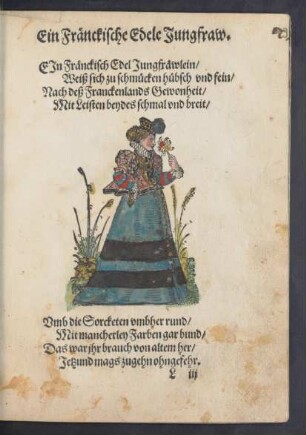 Ein Fränckische Edele Jungfraw.
EIn Fränckisch Edel Jungfräwlein/
Weiß sich zu schmücken hübsch vnd fein/
Nach deß Franckenlands Gewonheit/
Mit Leisten beydes schmal vnd breit/
Vmb die Sorcketen vmbher rund/
Mit mancherley Farben gar bund/
Das war jhr brauch von altem her/
Jetzund mags zugehn ohngefehr.
L iij